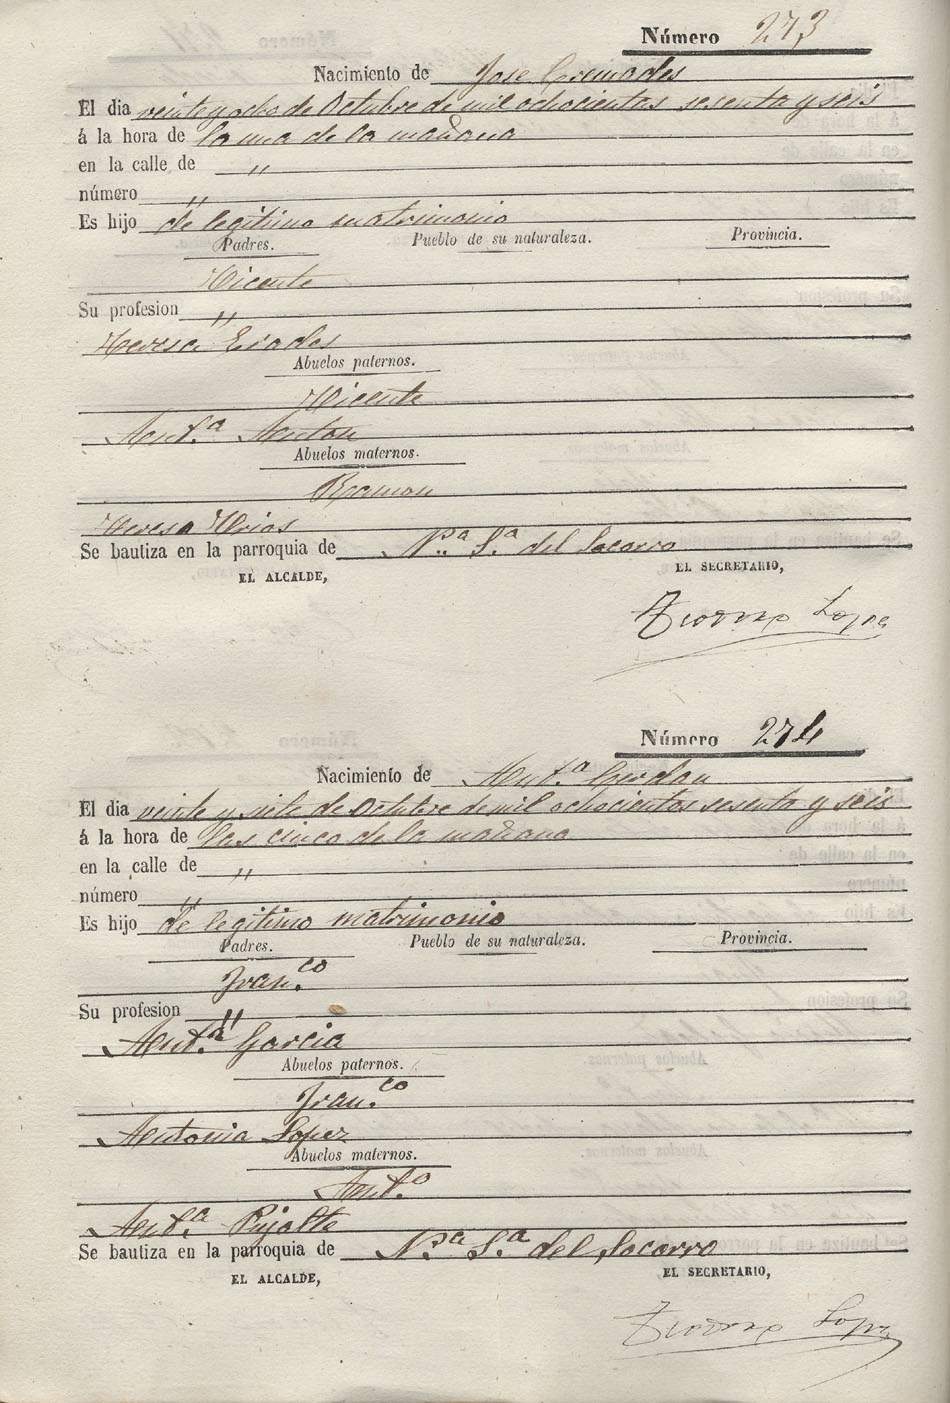 Número 273
Nacimiento de Jose Cremades
El dia veinte y ocho de Octubre de mil ochocientos sesenta y seis
á la hora de la una de la mañana
en la calle de "
número "
Es hijo de legitimo matrimonio
Padres. Pueblo de su naturaleza. Provincia.
Vicente
Su profesion "
Teresa
Abuelos paternos.
Vicente
Ant.ª Anton
Abuelos maternos.
Ramon
Teresa
Se bautiza en la parroquia de N.ª S.ª del Socorro
EL ALCALDE, EL SECRETARIO,
Lopez
Número 274
Nacimiento de Ant.ª Cerdan
El dia veinte y siete de Octubre de mil ochocientos sesenta y seis
á la hora de las cinco de la mañana
en la calle de "
número "
Es hijo de legitimo matrimonio
Padres. Pueblo de su naturaleza. Provincia.
Fran.co
Su profesion "
Ant.ª Garcia
Abuelos paternos.
Fran.co
Antonia Lopez
Abuelos maternos.
Ant.º
Ant.ª Pujalte
Se bautiza en la parroquia de N.ª S.ª del Socorro
EL ALCALDE, EL SECRETARIO,
Lopez